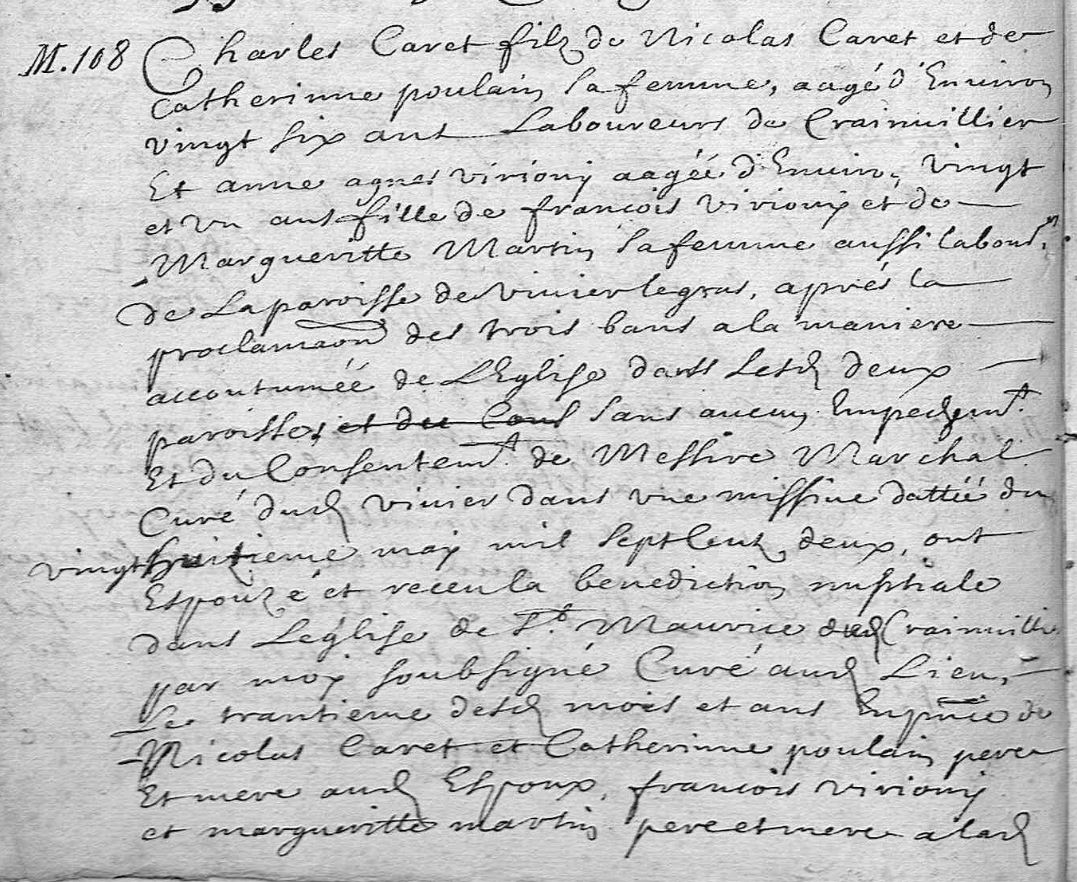 M. 108 Charles Cavet filz de Nicolas Cavet et de
Catherinne poulain sa femme, aagé d'Environ
vingt six ans Laboureurs de Crainvillier
Et anne agnes virion aagéé d'Environ vingt
et un ans fille de francois virion et de
Margueritte Martin sa femme aussi labour.rs
de La paroisse de vivier le gras, aprés la
proclamaon des trois bans a la maniere
accoutuméé de L'Eglise dans Lesd deux
paroisses et du Cons sans aucun Empechemt.
Et du Consentemt. de Messire Marchal
Curé dud vivier dans une missive dattéé du
vingt huitieme may mil sept Cent deux, ont
Espouzé et receu la benediction nuptiale
dans Leglise de St. Maurice dud Crainvillie
par moy soubsigné Curé aud Lieu,
Le trantieme desd mois et ans En pnce de
Nicolas Cavet et Catherinne poulain pere
Et mere aud Espoux, francois virion
et margueritte martin pere et mere a lad